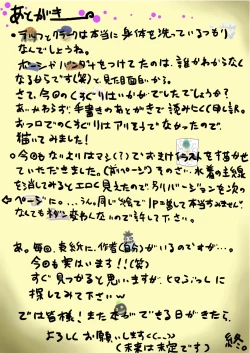 あとがき
・ラッコとリラークは本当に身体を洗っているつもり
なんでしょうね。
ボーシドバンダナをつけてたのは、誰かわからなく
なるからです(笑)と見た目面白いから。
さて、今回のくすぐりはいかがでしたでしょうか?
あいかわらず、手書きのあとがきで読みにくく申し訳。
おフロでのくすぐりはアリそうでなかったので、
描いてみました!
○今回もなによりはマシ(?)でおまけイラストを描かせ
ていただきました。(前ページ)そのさい、水着の主線
を消してみるとエロく見えたので、別バージョンを次の
←ページに…。うん。同じ絵で1P差して本当すみません。
なんでも秒変わんないので許して下さい。
あ。毎回、表紙に、作者(自分)がいるのですが…。
今回も実はいます!!(笑)
すぐ見つかると思いますが、ヒマつぶしに
探してみて下さいw
では皆様!またお会いできる日がきたら、
よろしくお願いします<(_ _)>
(未来は未定です)
終。